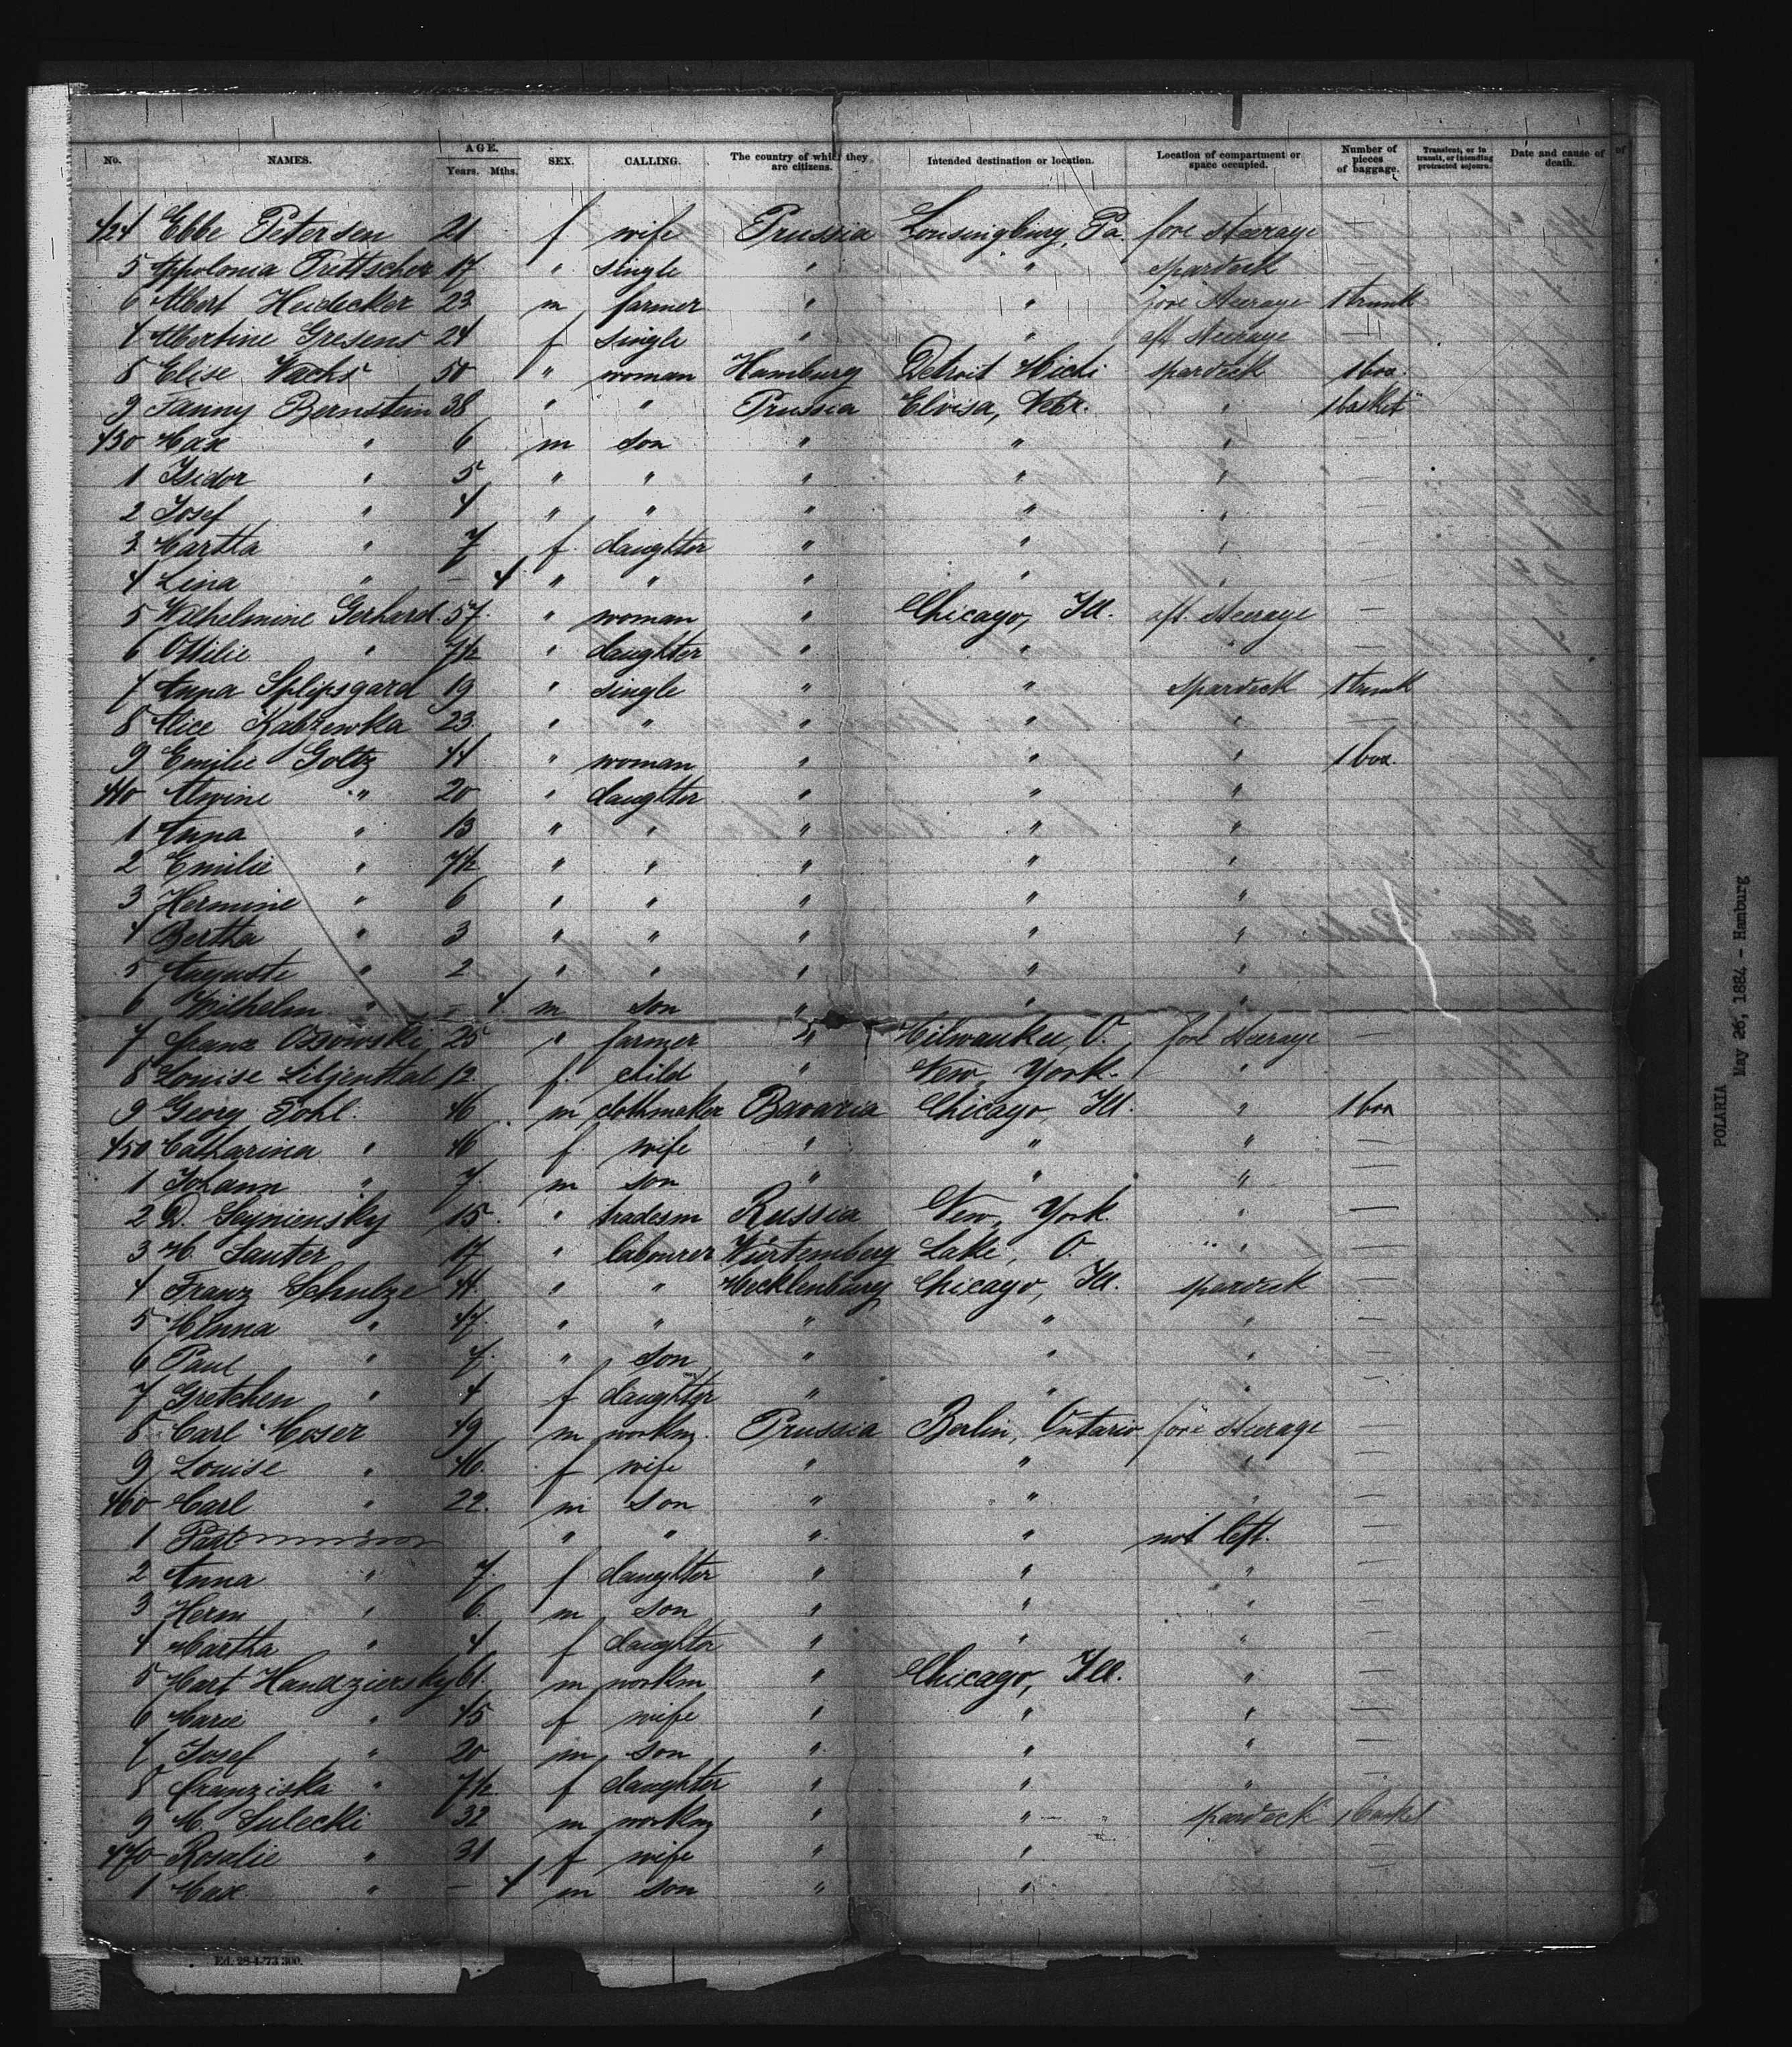 No. NAMES. AGE. Years. Mths. SEX. CALLING. The country of which they are citizens. Intended destination or location. Location of compartment or space occupied. Number of pieces of baggage. Transient, or in transit, or intending protracted sojourn. Date and cause of death.
424 Ebbe Petersen 21 f wife Prussia Lonsingburg, Pa. fore steerage —
5 Appolonia Prettscher 17 " single " " spardeck —
6 Albert Heidecker 23 m farmer " " fore steerage 1 trunk
7 Albertine Gresens 24 f single " " aft steerage —
8 Elise Wachs 50 " woman Hamburg Detroit Michi spardeck 1 box.
9 Fanny Bernstein 38 " " Prussia Elvisa, Nebr. " 1 basket
430 Max " 6 m son " " "
1 Isidor " 5 " " " " "
2 Josef " 4 " " " " "
3 Martha " 7 f. daughter " " "
4 Lina " — 4 " " " " " —
5 Wilhelmine Gerhard. 57. " woman " Chicago, Ill. aft. steerage —
6 Ottilie " 7½ " daughter " " " —
7 Anna Splipsgard 19 " single " " spardeck 1 trunk
8 Alice Kabzewka 23. " " " " " —
9 Emilie Goltz 44 " woman " " " 1 box.
440 Alwine " 20 " daughter " " "
1 Anna " 13 " " " " "
2 Emilie " 7½ " " " " "
3 Hermine " 6 " " " " "
4 Bertha " 3 " " " " "
5 Auguste " 2 " " " " "
6 Wilhelm " — 4 m son " " "
7 Franz Ossowski 25 " farmer " Milwaukee, O. fore steerage —
8 Louise Liljenthal 12. f. child " New York. " —
9 Georg Pohl. 46 m clothmaker Bavaria Chicago, Ill. " 1 box
450 Catharina " 46 f. wife " " " —
1 Johann " 7. m son " " " —
2 D. 15. " tradesm Russia New York. " —
3 M. Sauter 17 " labourer Würtemberg Lake, O. " —
4 Franz Schulze 44. " " Mecklenburg Chicago, Ill. spardeck —
5 Minna " 47. " " " " " —
6 Paul " 7. " son " " " —
7 Gretchen " 4 f daughter " " " —
8 Carl Moser 49 m workm. Prussia Berlin, Ontario fore steerage —
9 Louise " 46. f wife " " " —
460 Carl " 22. m son " " " —
1 Paul " " " " not left. —
2 Anna " 7. f daughter " " " —
3 Herm " 6. m son " " " —
4 Martha " 4 f daughter " " " —
5 Mart Handziersky 61. m workm " Chicago, Ill. " —
6 Marie " 45 f wife " " " —
7 Josef " 20 m son " " " —
8 Franziska " 7½. f daughter " " " —
9 M. Sulecki 32 m workm " " spardeck 1 basket
470 Rosalie " 31 f wife " " —
1 Max " — 4 m son " " —
Ed. 28-4-73 300.
POLARIA
May 26, 1884 - Hamburg